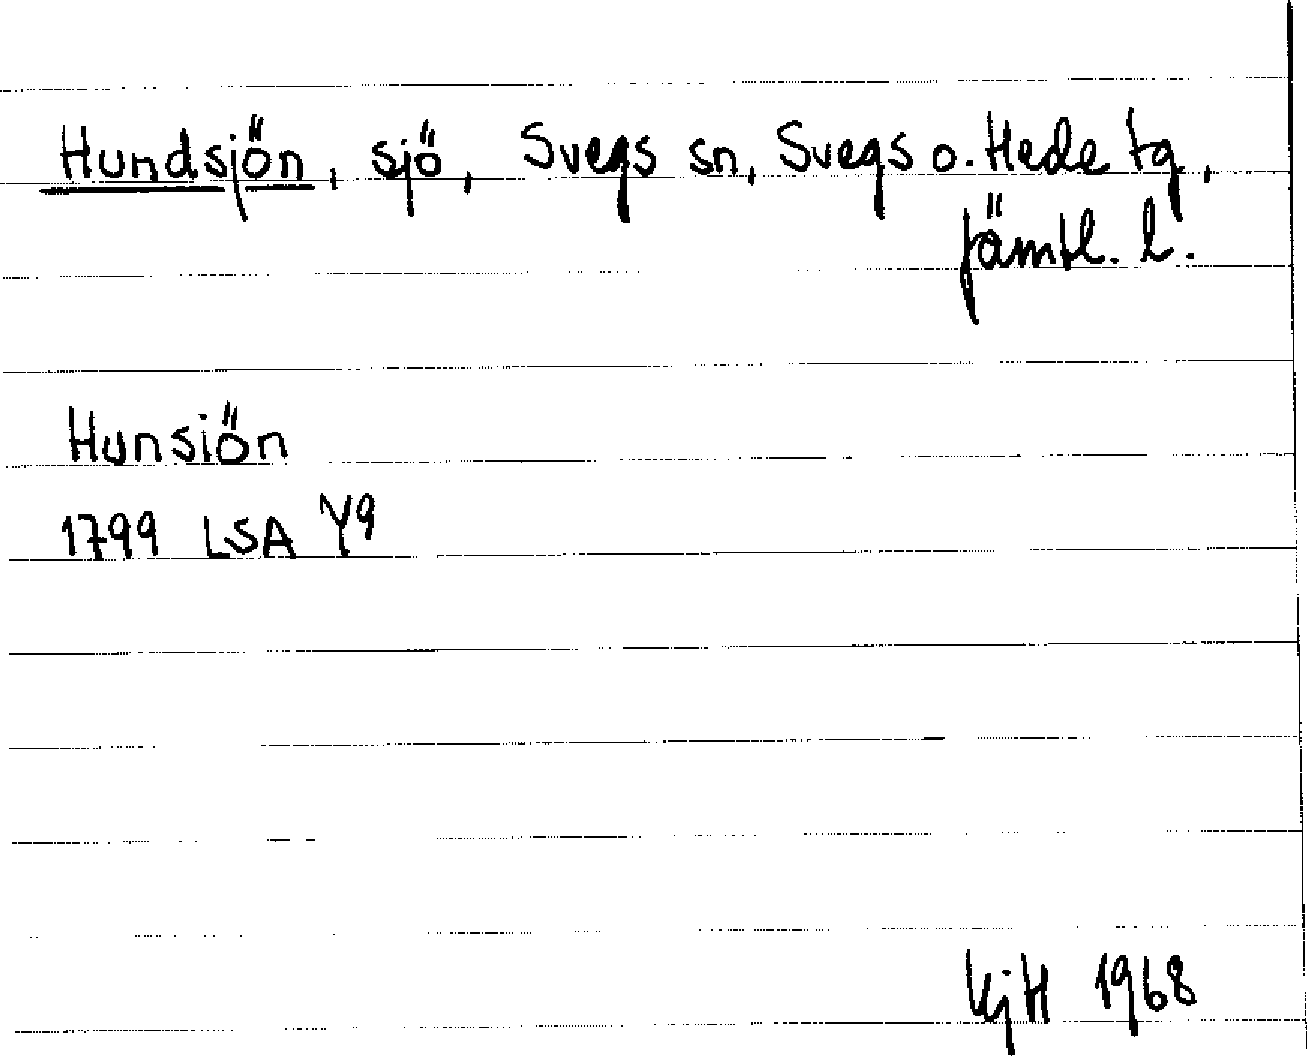 Hundsjön, sjö, Svegs sn, Svegs o. Hede tg,
Jämtl. l.
Hunsiön
1799 LSA Y9
KjH 1968